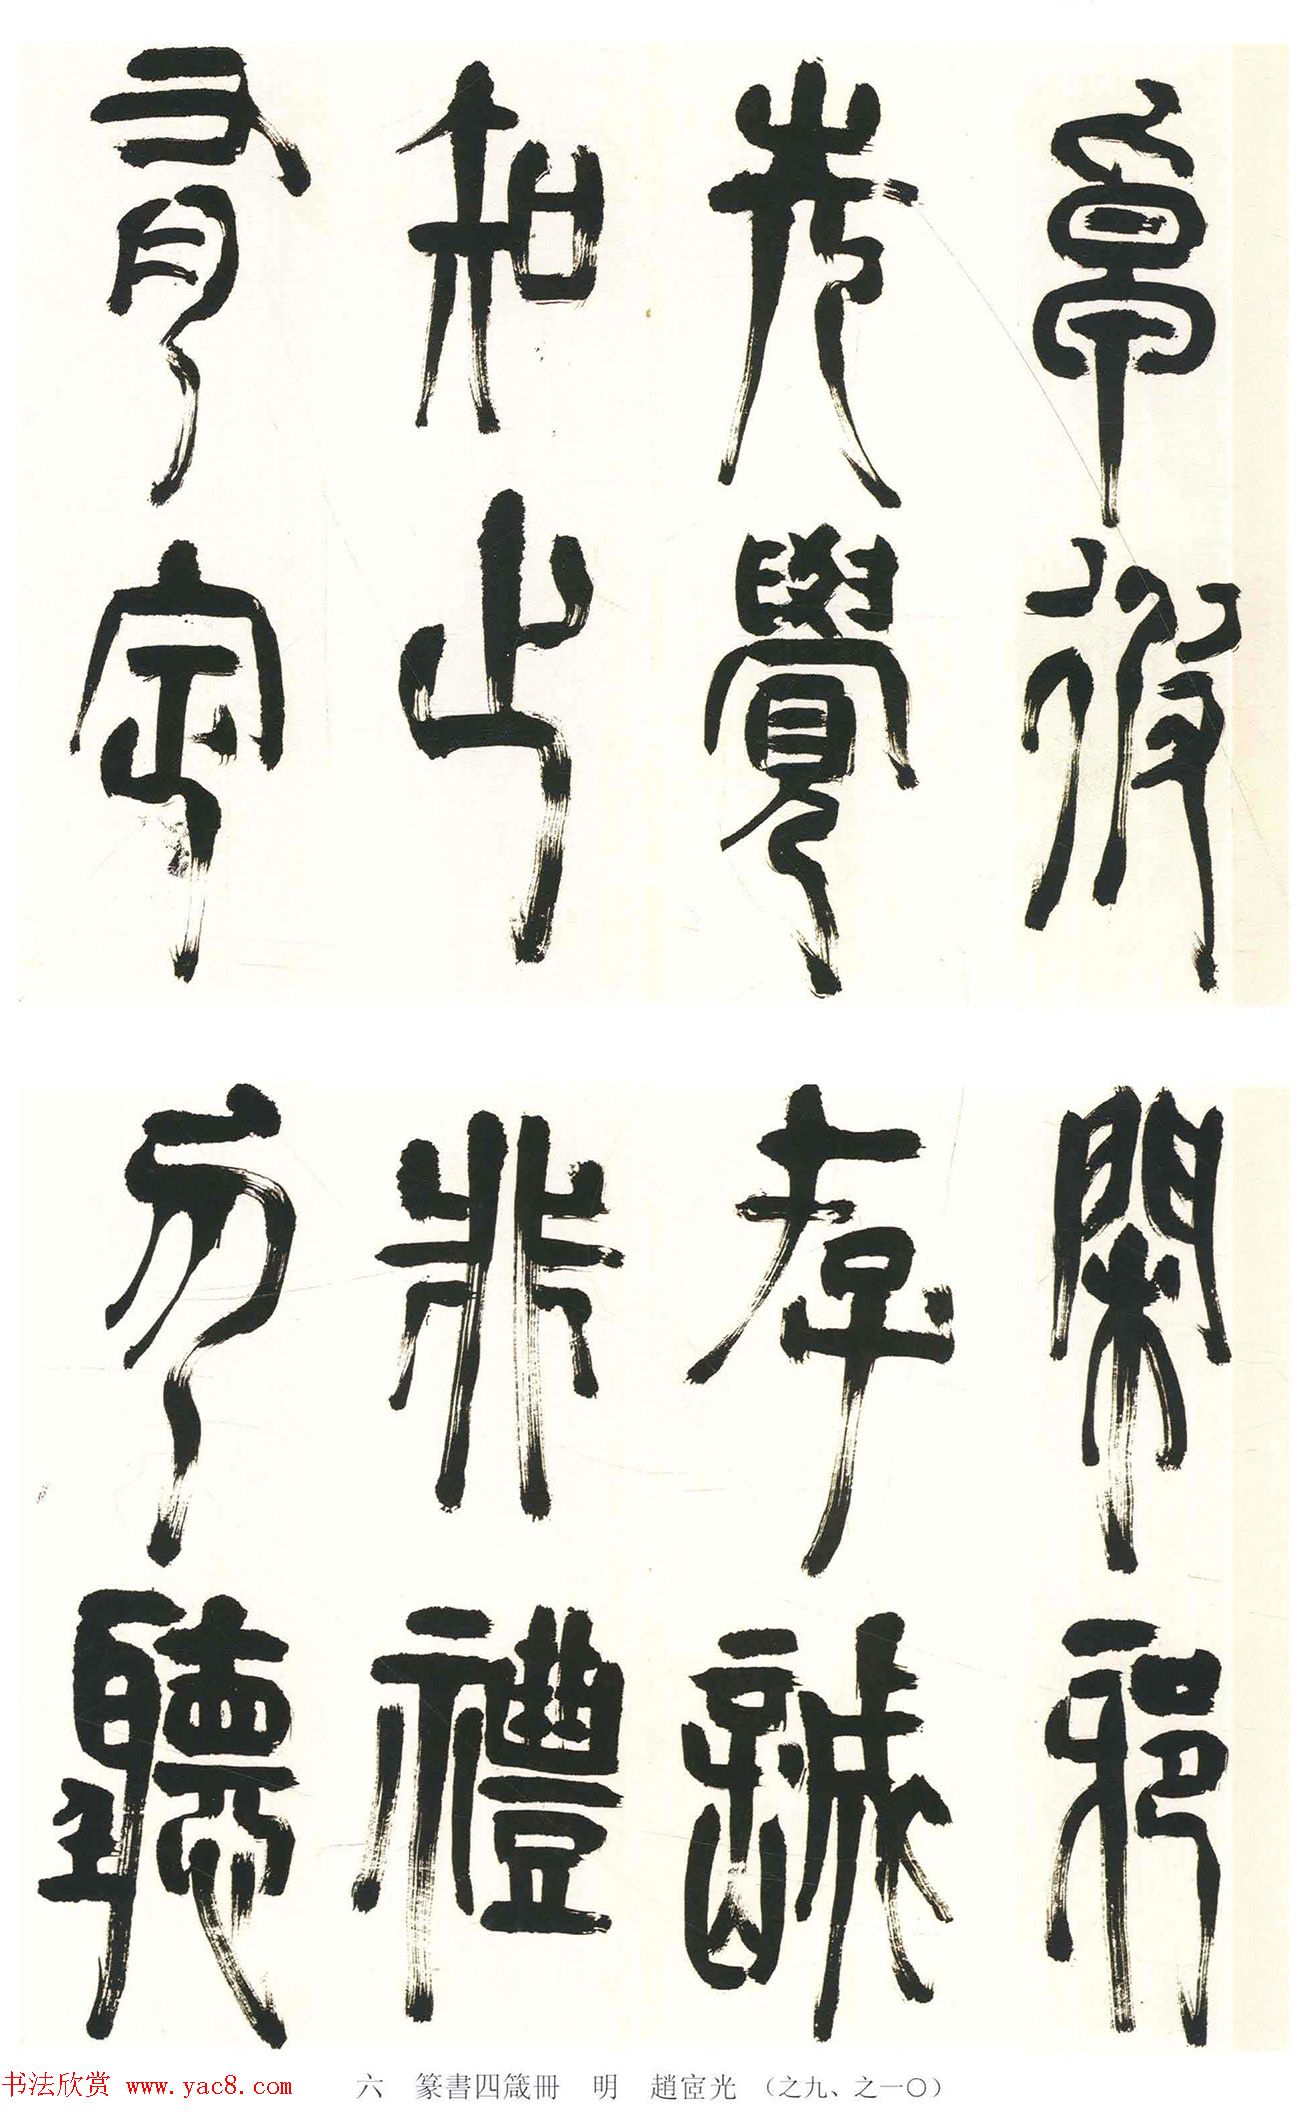 卓彼
先覺
知止
有定
閑邪
存誠
非禮
勿聽
六　篆書四箴冊　明　趙宧光　（之九、之一〇）
书法欣赏 www.yac8.com